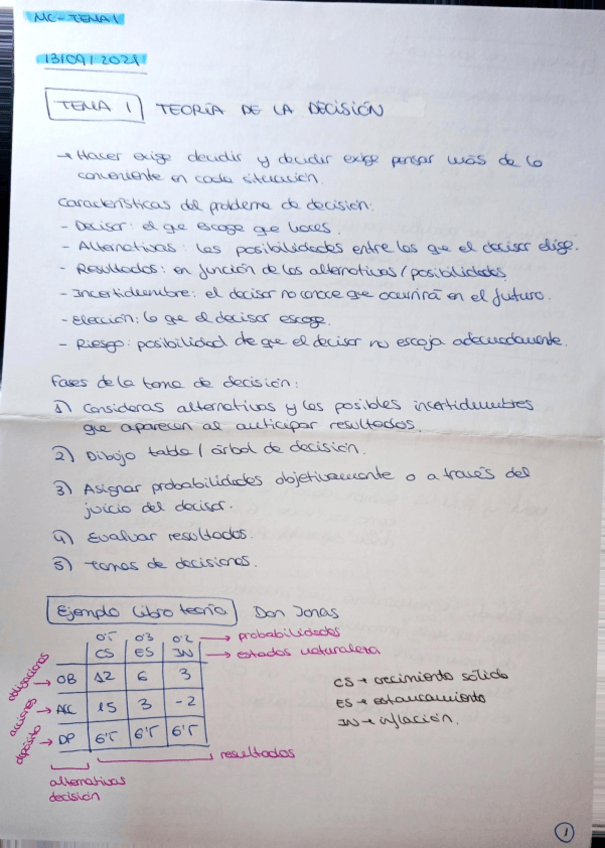 MC-TEMA 1
13/09/2021
TEMA 1 TEORÍA DE LA DECISIÓN
→ Hacer exige decidir y decidir exige pensar más de lo
conveniente en cada situación.
Características del problema de decisión:
- Decisor: el que escoge que haces.
- Alternativas: las posibilidades entre las que el decisor elige.
- Resultados: en función de las alternativas/posibilidades.
- Incertidumbre: el decisor no conoce que ocurrirá en el futuro.
- Elección: lo que el decisor escoge.
- Riesgo: posibilidad de que el decisor no escoja adecuadamente.
Fases de la toma de decisión:
1) Consideras alternativas y las posibles incertidumbres
que aparecen al anticipar resultados.
2) Dibujo tabla/árbol de decisión.
3) Asignar probabilidades objetivamente o a través del
juicio del decisor.
4) Evaluar resultados.
5) Tomas de decisiones.
Ejemplo libro teoría Don Jonas
0'5 0'3 0'2 → probabilidades
CS ES IN → estados naturaleza
obligaciones → OB 12 6 3
acciones → AC 15 3 -2
depósito → DP 6'5 6'5 6'5
CS → crecimiento sólido
ES → estancamiento
IN → inflación.
resultados
alternativas
decisión
1